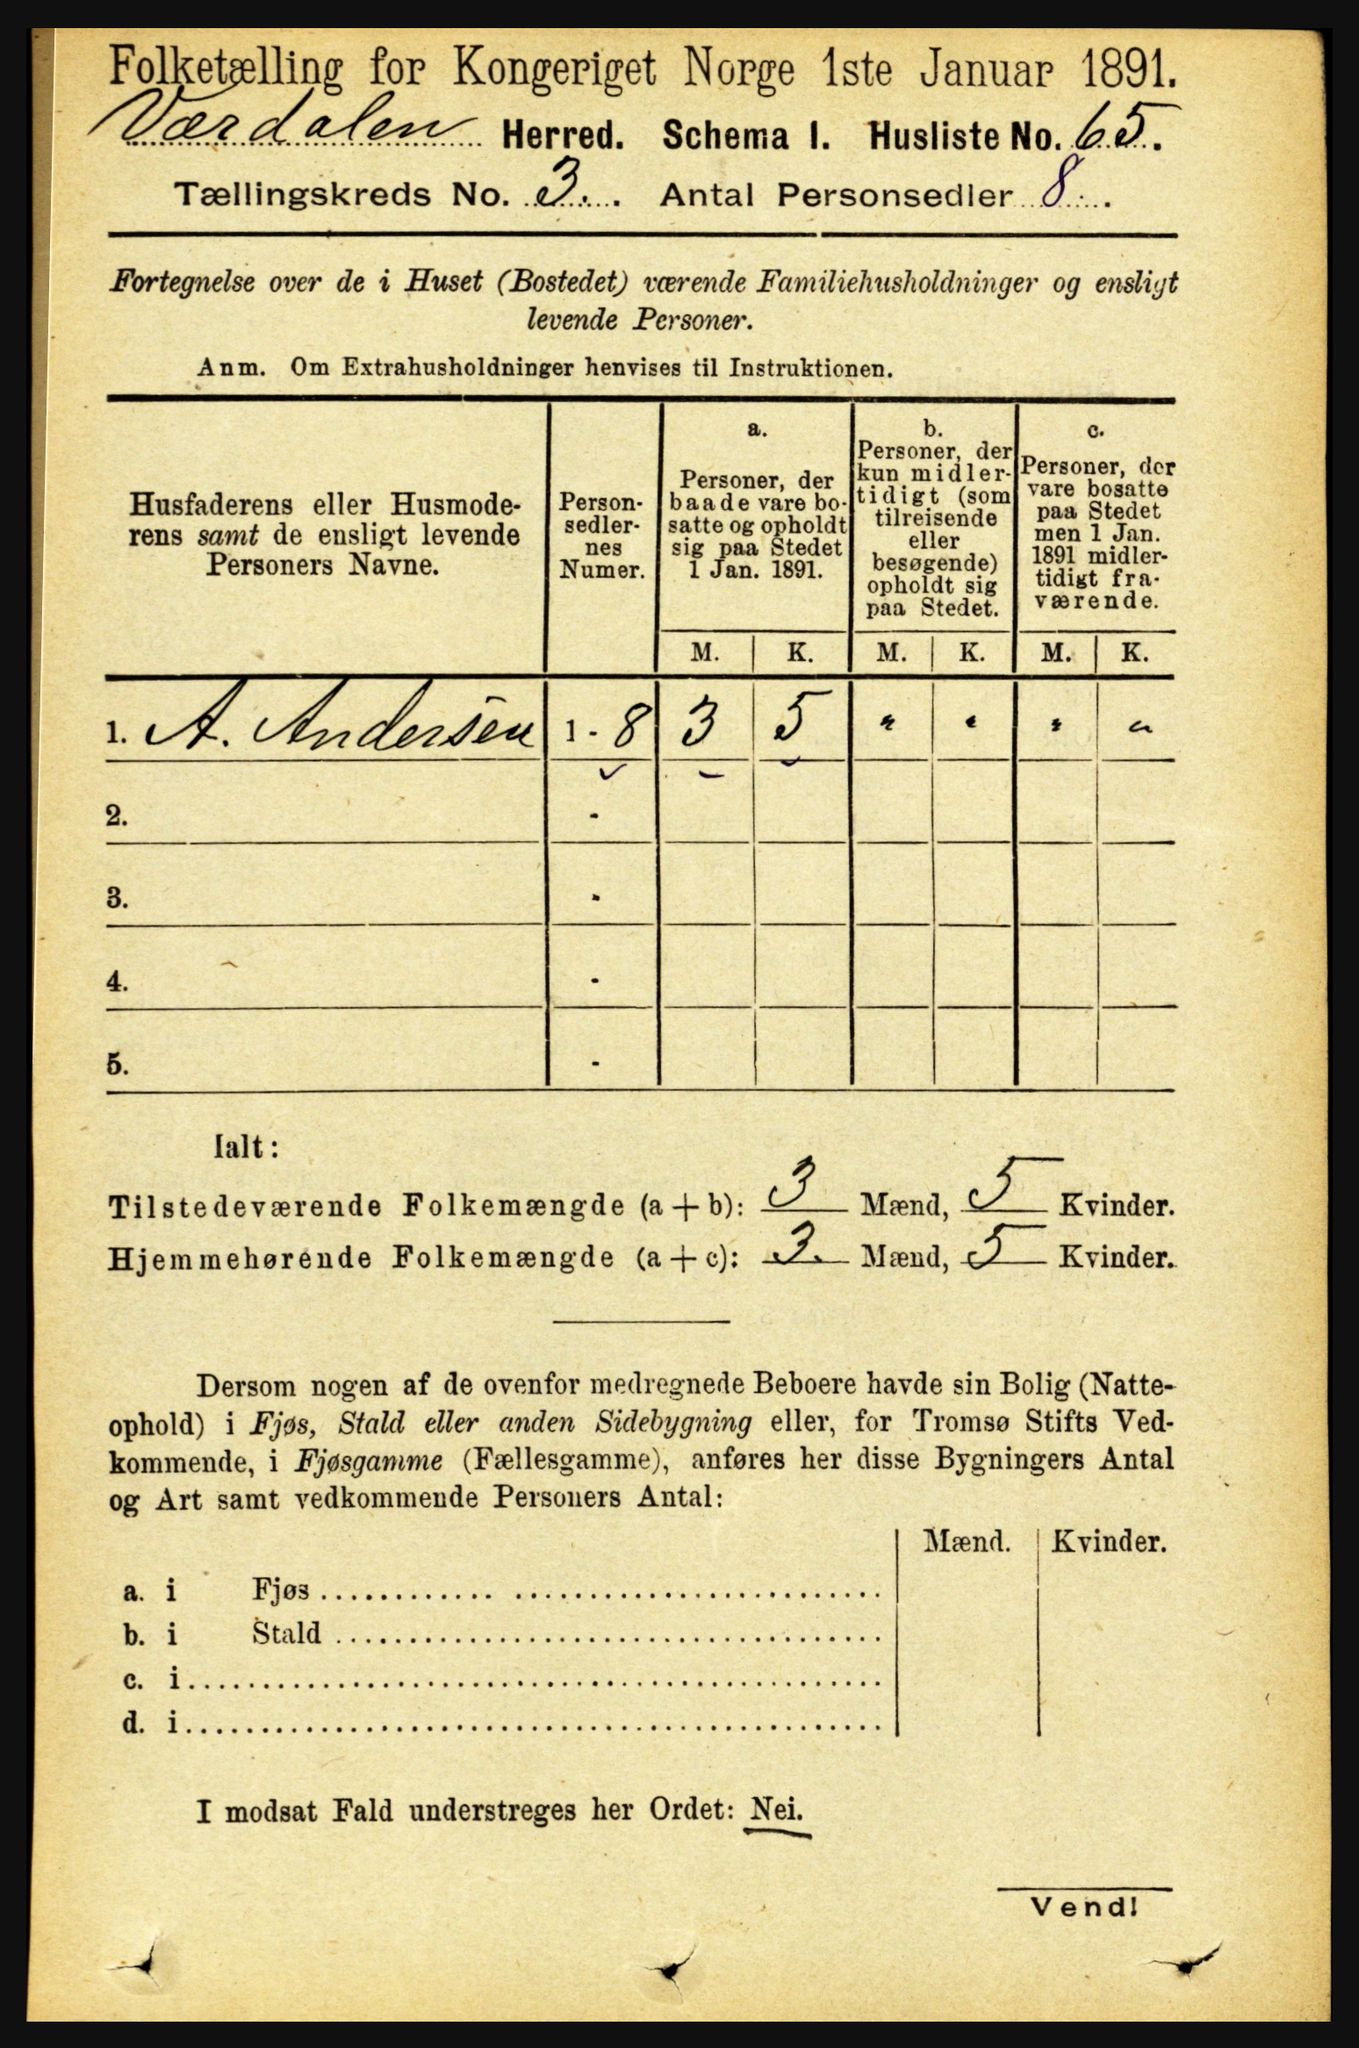 Folketælling for Kongeriget Norge 1ste Januar 1891.
Værdalen Herred. Schema I. Husliste No. 65.
Tællingskreds No. 3. Antal Personsedler 8.
Fortegnelse over de i Huset (Bostedet) værende Familiehusholdninger og ensligt
levende Personer.
Anm. Om Extrahusholdninger henvises til Instruktionen.
Husfaderens eller Husmode-
rens samt de ensligt levende
Personers Navne.
Person-
sedler-
nes
Numer.
a.
Personer, der
baade vare bo-
satte og opholdt
sig paa Stedet
1 Jan. 1891.
b.
Personer, der
kun midler-
tidigt (som
tilreisende
eller
besøgende)
opholdt sig
paa Stedet.
c.
Personer, der
vare bosatte
paa Stedet
men 1 Jan.
1891 midler-
tidigt fra-
værende.
M. K. M. K. M. K.
1. A. Andersen 1 - 8 3 5 " " " "
2. -
3. -
4. -
5. -
Ialt:
Tilstedeværende Folkemængde (a + b): 3 Mænd, 5 Kvinder.
Hjemmehørende Folkemængde (a + c): 3. Mænd, 5 Kvinder.
Dersom nogen af de ovenfor medregnede Beboere havde sin Bolig (Natte-
ophold) i Fjøs, Stald eller anden Sidebygning eller, for Tromsø Stifts Ved-
kommende, i Fjøsgamme (Fællesgamme), anføres her disse Bygningers Antal
og Art samt vedkommende Personers Antal:
Mænd. Kvinder.
a. i Fjøs
b. i Stald
c. i
d. i
I modsat Fald understreges her Ordet: Nei.
Vend!